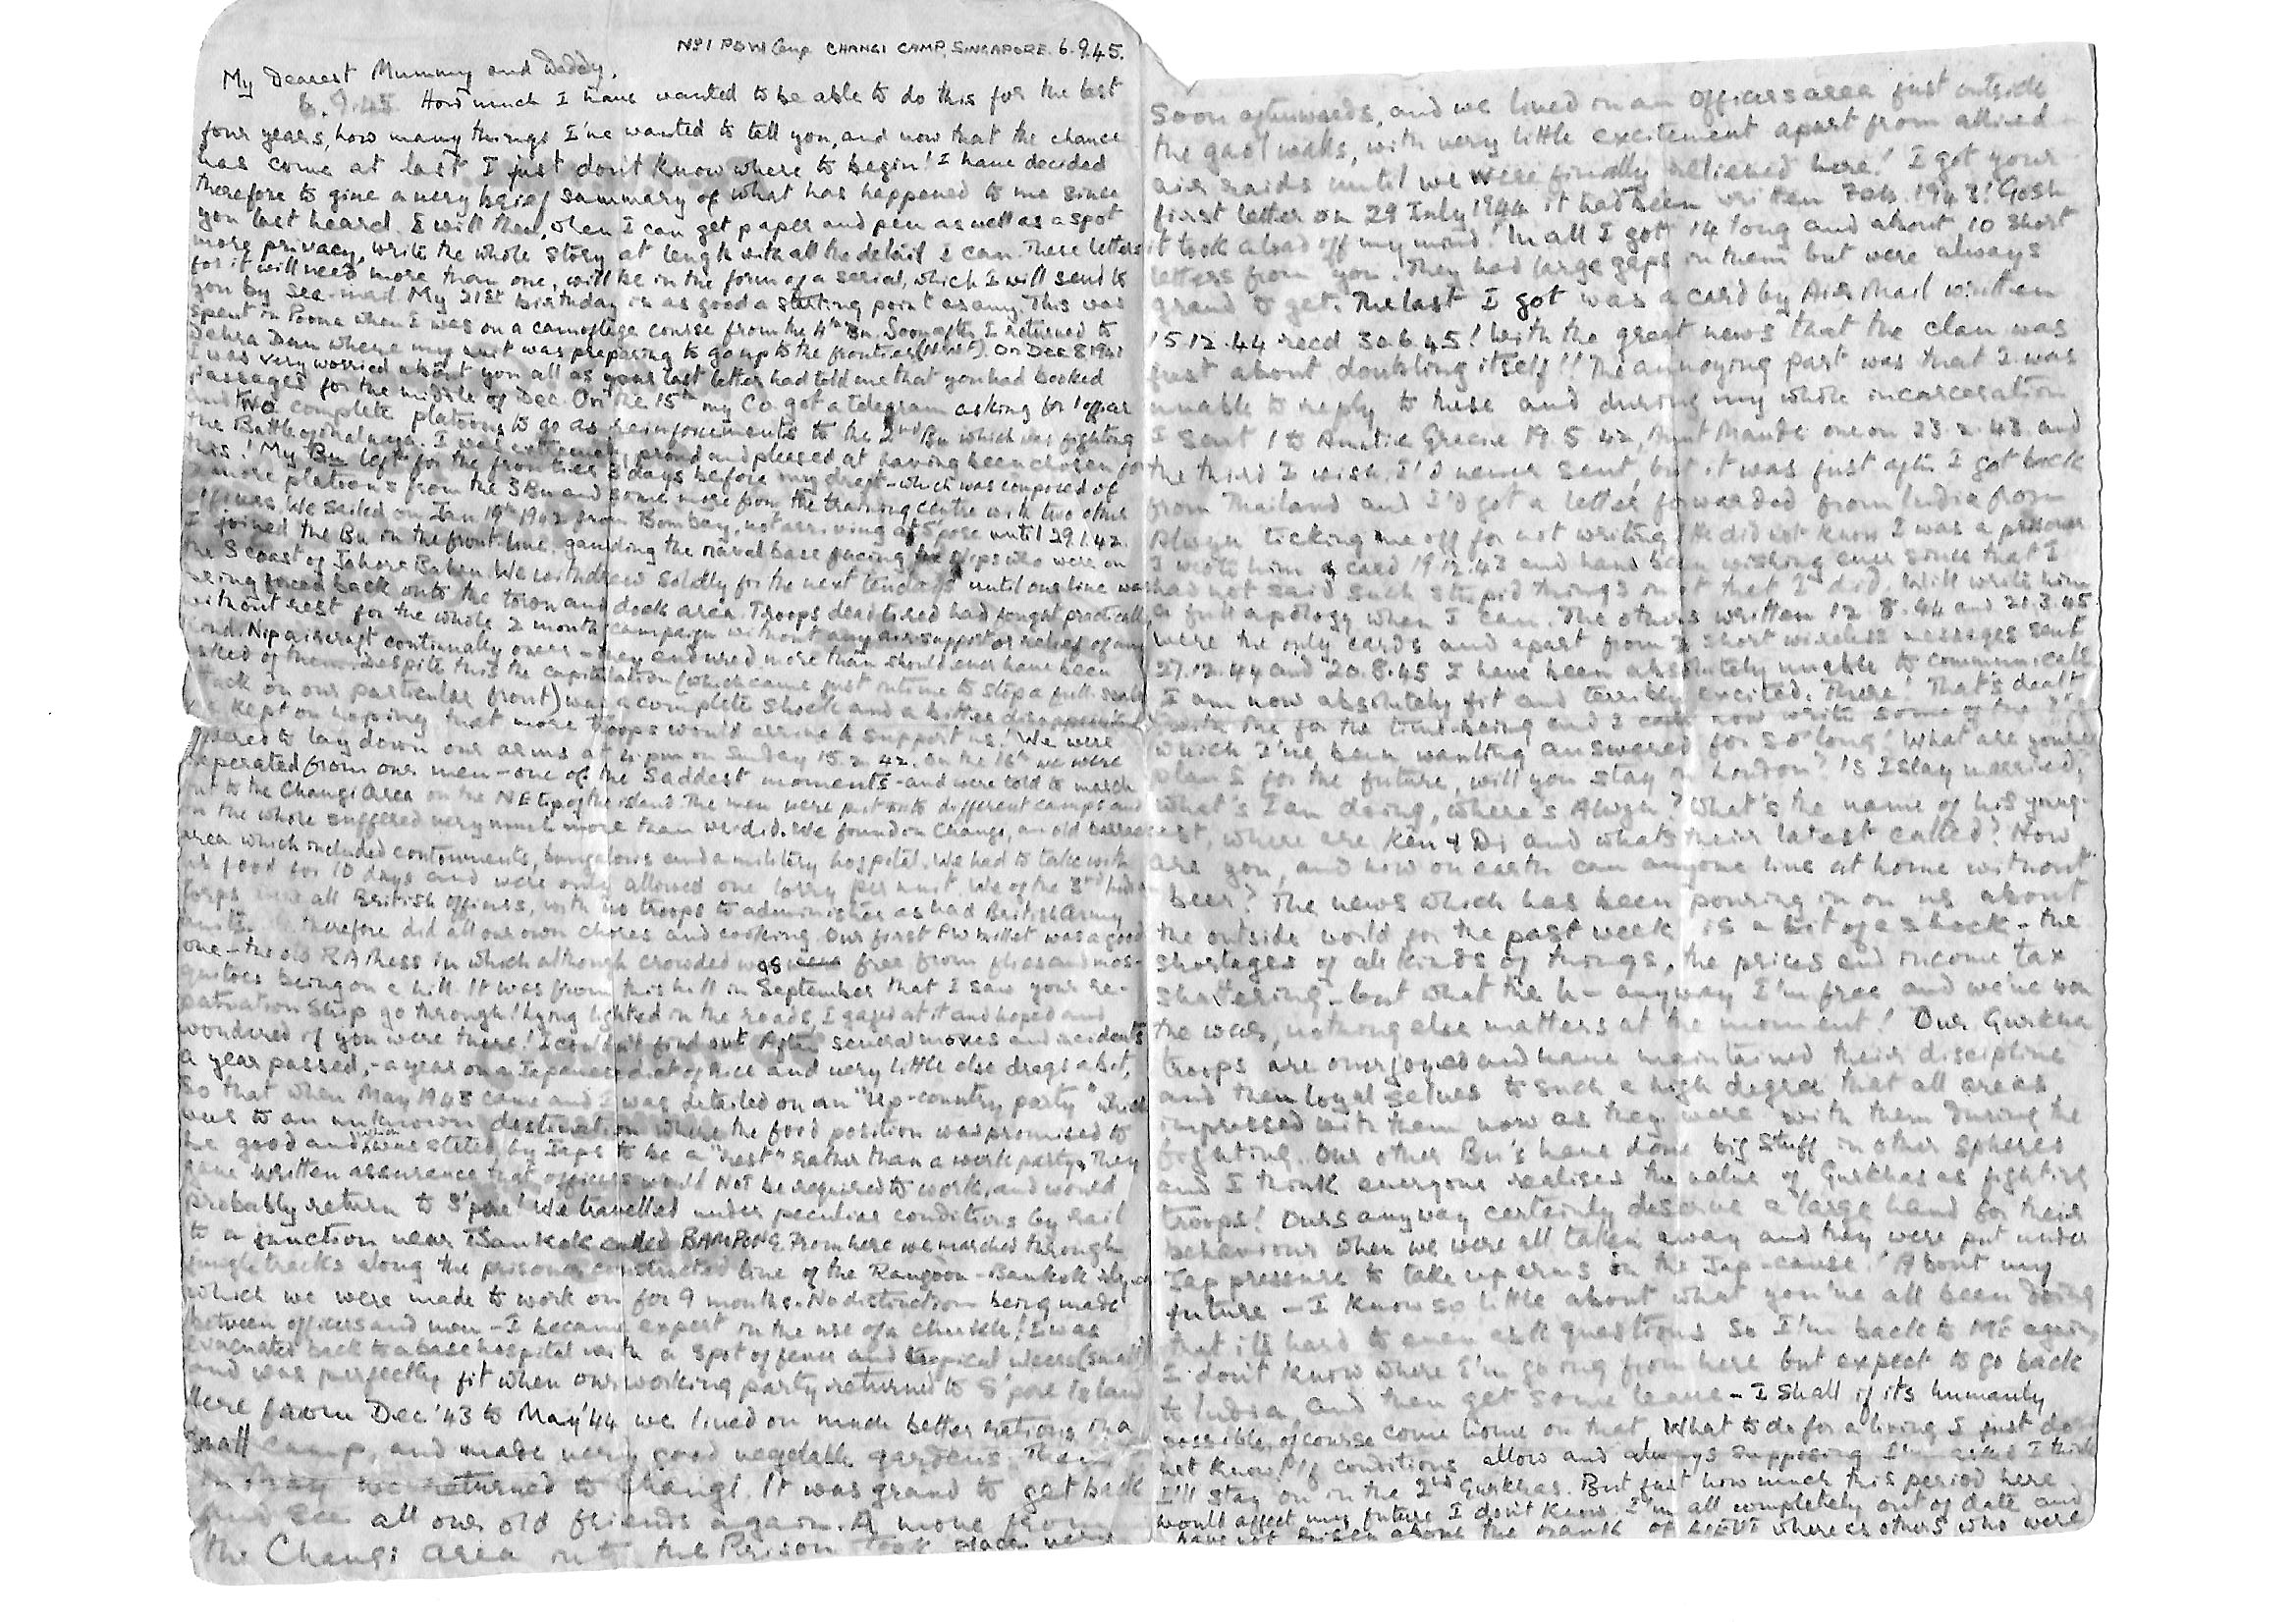 No 1 POW Camp CHANGI CAMP, SINGAPORE. 6.9.45.
My Dearest Mummy and Daddy,
6.9.45 How much I have wanted to be able to do this for the last
four years, how many things I've wanted to tell you, and now that the chance
has come at last I just don't know where to begin! I have decided
therefore to give a very brief summary of what has happened to me since
you last heard. I will then, when I can get paper and pen as well as a spot
more privacy, write the whole story at length with all the detail I can. These letters
for it will need more than one, will be in the form of a serial, which I will send to
you by sea-mail. My 21st birthday is as good a starting point as any. This was
spent in Poona when I was on a camoflage course from the 4th Bn. Soon after I returned to
Dehra Dun where my unit was preparing to go up to the frontier (NWF). On Dec 8 1941
I was very worried about you all as your last letter had told me that you had booked
passages for the middle of Dec. On the 15th my Co. got a telegram asking for 1 officer
and two complete platoons to go as reinforcements to the 2nd Bn which was fighting
the Battle of Malaya. I was extremely proud and pleased at having been chosen for
this! My Bn left for the frontier 3 days before my draft - which was composed of
2 more platoons from the 3 Bn and some more from the training centre with two other
officers. We sailed on Jan 19th 1942 from Bombay, not arriving at S'pore until 29.1.42.
I joined the Bn on the front line guarding the naval base facing the Nips who were on
the S coast of Johore Bahru. We withdrew solidly for the next ten days until our line was
being forced back onto the town and dock area. Troops dead tired had fought practically
without rest for the whole 2 month campaign without any air support or relief of any
kind. Nip aircraft continually over - they endured more than should ever have been
asked of them. Despite this the capitulation (which came just in time to stop a full scale
attack on our particular front) was a complete shock and a bitter disappointment
we kept on hoping that more troops would arrive to support us! We were
ordered to lay down our arms at 4. pm on Sunday 15.2.42. On the 16th we were
seperated from our men - one of the saddest moments - and were told to march
out to the Changi Area on the NE tip of the island. The men were put into different camps and
on the whole suffered very much more than we did. We found in Changi, an old barrack
area which included contonments, bungalows and a military hospital. We had to take with
us food for 10 days and were only allowed one lorry per unit. We of the 3rd Indian
Corps were all British officers, with no troops to administer as had British Army
units. We therefore did all our own chores and cooking. Our first PW billet was a good
one - the old RA Mess in which although crowded was free from flies and mos-
quitoes being on a hill. It was from this hill in September that I saw your re-
patriation ship go through! Lying lighted in the roads, I gazed at it and hoped and
wondered if you were there! I couldn't find out. After several moves and incidents
a year passed, - a year on a Japanese diet of rice and very little else drags a bit,
so that when May 1943 came and I was detailed on an "up-country party" which
was to an unknown destination where the food position was promised to
be good and when was stated by Japs to be a "rest" rather than a work party. They
gave written assurance that officers would NOT be required to work, and would
probably return to S'pore! We travelled under peculiar conditions by rail
to a junction near Bankok called BAMPONG. From here we marched through
jungle tracks along the prisoner constructed line of the Rangoon - Bankok rly, on
which we were made to work on for 9 months. No distinction being made
between officers and men - I became expert on the use of a chunkle! I was
evacuated back to a base hospital with a spot of fever and tropical ulcers (small)
and was perfectly fit when our working party returned to S'pore Island
Here from Dec '43 to May '44 we lived on much better rations in a
small camp, and made very good vegetable gardens. Then
in May we returned to Changi. It was grand to get back
and see all our old friends again. A move from
the Changi area into the Prison took place very
soon afterwards, and we lived in an officers area just outside
the gaol walls, with very little excitement apart from allied
air raids until we were finally relieved here! I got your
first letter on 29 July 1944 it had been written Feb. 1943! Gosh
it took a load off my mind! In all I got 14 long and about 10 short
letters from you. They had large gaps in them but were always
grand to get. The last I got was a card by Air Mail written
15.12.44 recd 30.6.45! With the great news that the clan was
just about doubling itself!! The annoying part was that I was
unable to reply to these and during my whole incarceration
I sent 1 to Auntie Gracie 19.5.42, Aunt Maude one on 23.2.43 and
the third I wish I'd never sent, but it was just after I got back
from Thailand and I'd got a letter forwarded from India from
Alwyn ticking me off for not writing. He did not know I was a prisoner
I wrote him a card 19.12.43 and have been wishing ever since that I
had not said such stupid things in it that I did. Will write him
a full apology when I can. The others written 12.8.44 and 21.3.45
were the only cards and apart from 2 short wireless messages sent
27.12.44 and 20.8.45 I have been absolutely unable to communicate
I am now absolutely fit and terribly excited. There! That's dealt
with me for the time being and I can now write some of the ?'s
which I've been wanting answered for so long! What are your
plans for the future, will you stay in London? Is Islay married,
what's Ian doing, where's Alwyn? What's the name of his young-
est, where are Ken & Di and whats their latest called? How
are you, and how on earth can anyone live at home without
beer? The news which has been pouring in on us about
the outside world for the past week is a bit of a shock - the
shortages of all kinds of things, the prices and income tax
shattering - but what the h- anyway I'm free and we've won
the war, nothing else matters at the moment! Our Gurkha
troops are overjoyed and have maintained their discipline
and their loyal selves to such a high degree that all areas
impressed with them now as they were with them during the
fighting. Our other Bn's have done big stuff in other spheres
and I think everyone realises the value of Gurkhas as fighting
troops! Ours anyway certainly deserve a large hand for their
behaviour when we were all taken away and they were put under
Jap pressure to take up arms in the Jap-cause! About my
future - I know so little about what you've all been doing
that it's hard to even ask questions so I'm back to ME again,
I don't know where I'm going from here but expect to go back
to India and then get some leave - I shall if its humanly
possible, ofcourse come home on that. What to do for a living I just do
not know! If conditions allow and always supposing I'm asked I think
I'll stay on in the 2nd Gurkhas. But just how much this period here
would affect my future I don't know. I'm all completely out of date and
have not risen above the rank of LIEUT whereas others who were